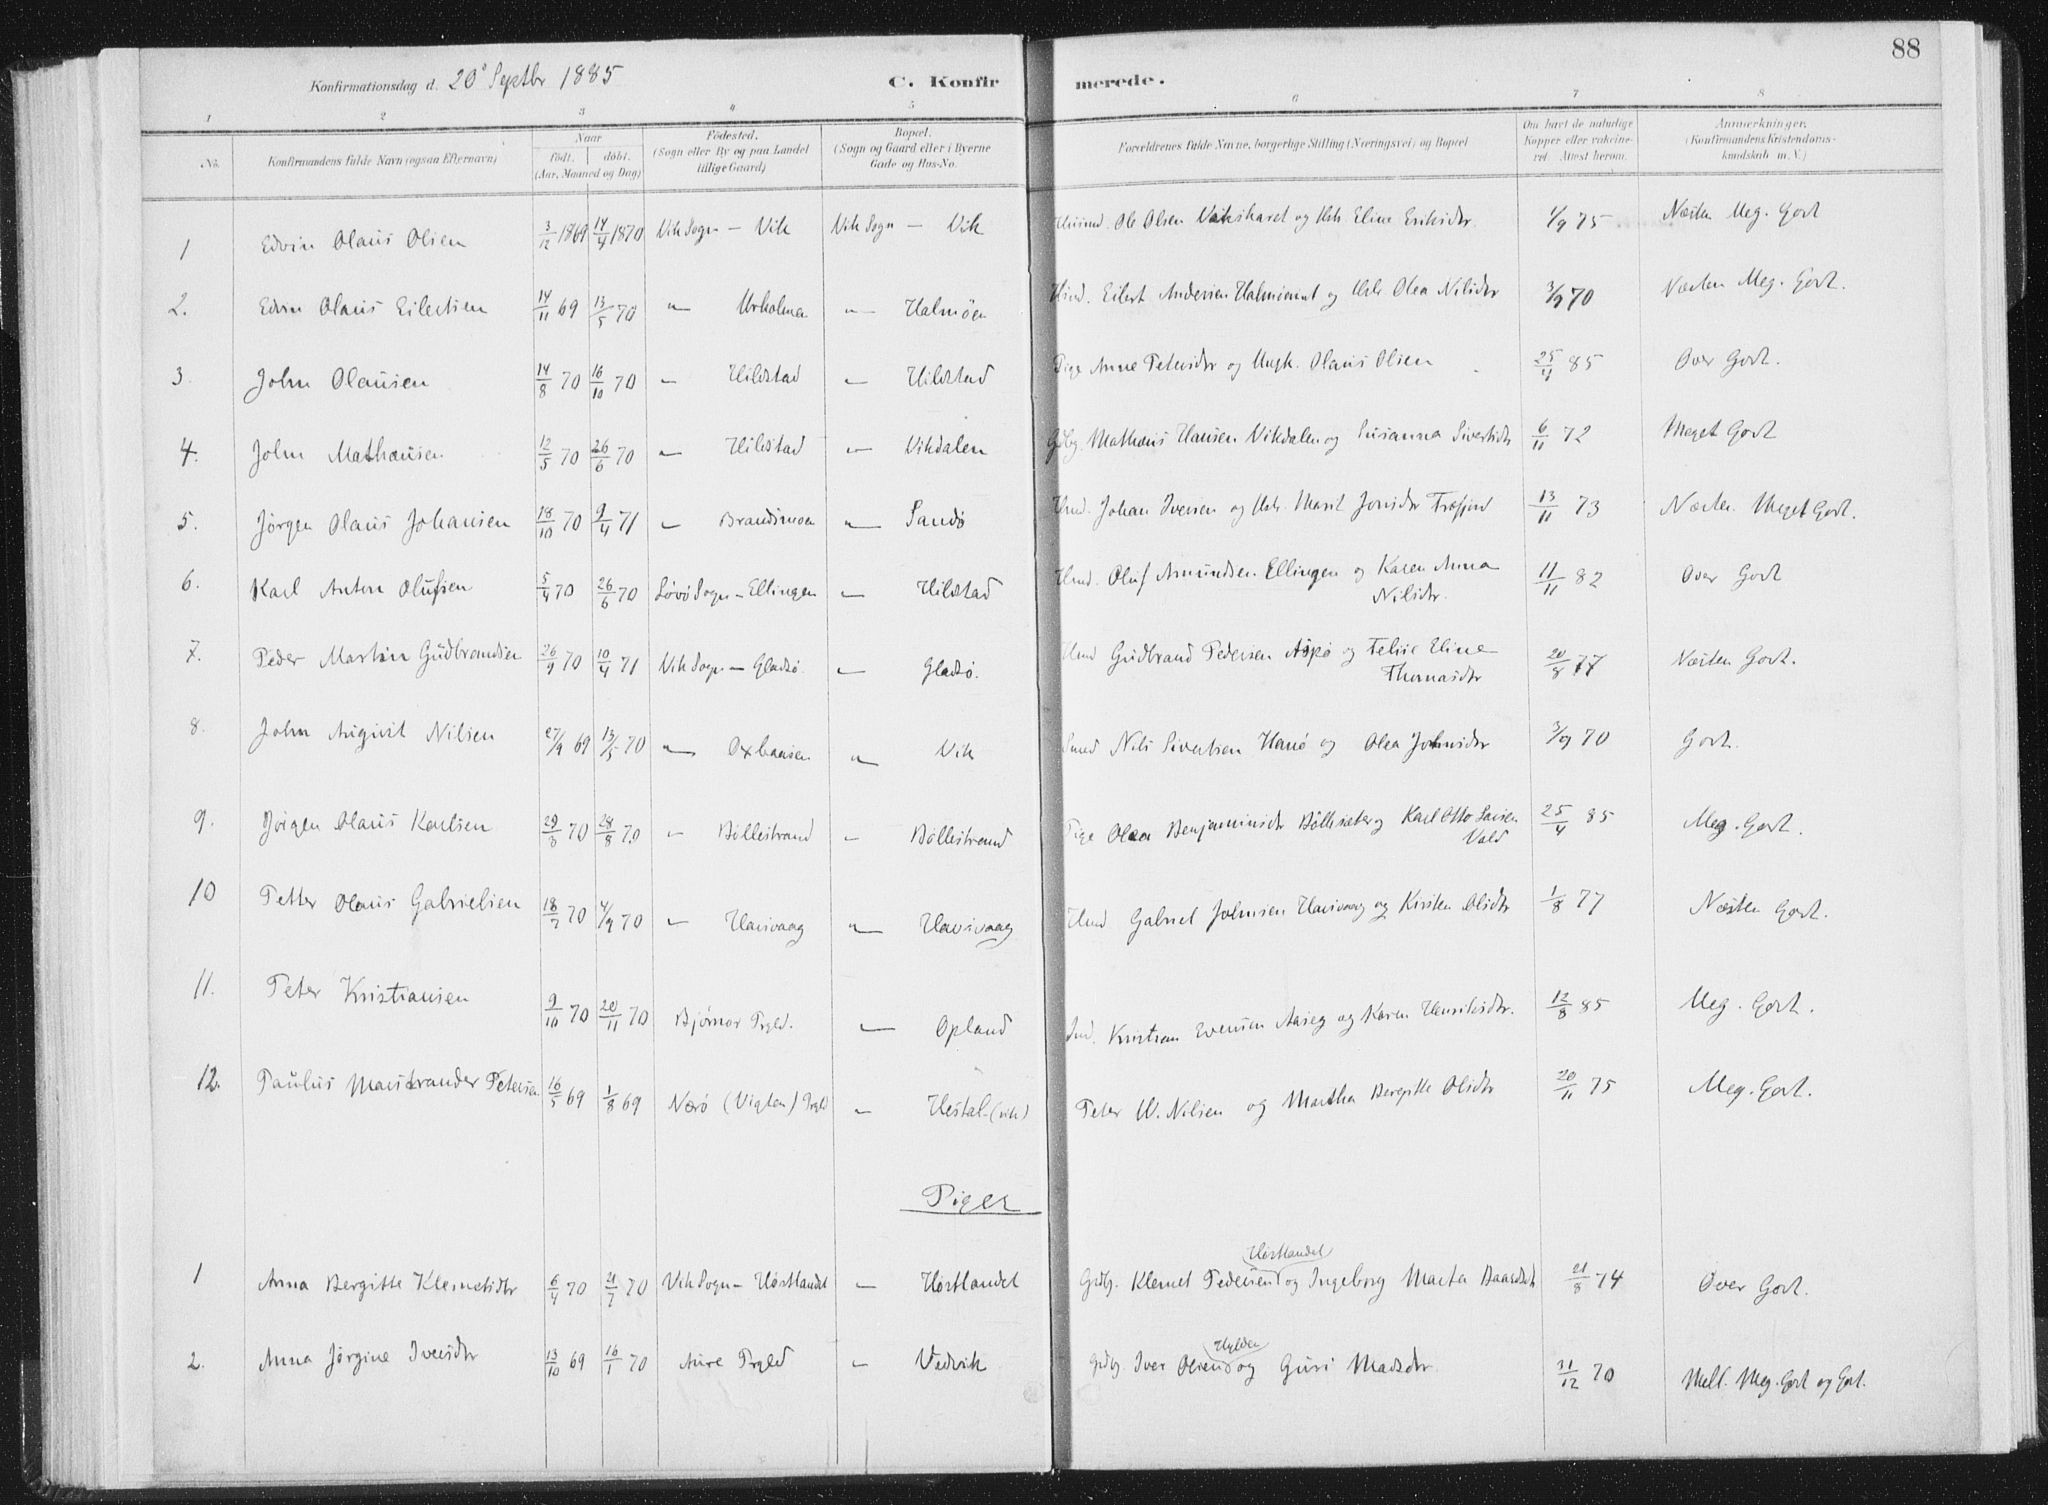 88
Konfirmationsdag d. 20de Septbr 1885 C. Konfirmerede.
1 2 3 4 5 6 7 8
No. Konfirmandens fulde Navn (ogsaa Efternavn) Naar født. døbt. (Aar, Maaned og Dag) Fødested. (Sogn eller By og paa Landet tillige Gaard) Bopæl. (Sogn og Gaard eller i Byerne Gade og Hus-No. Forældrenes fulde Navne, borgerlige Stilling (Næringsvei) og Bopæl Om havt de naturlige Kopper eller vakcineret. Attest herom. Anmærkninger. (Konfirmandens Kristendomskundskab m. V.)
1 Edvin Olaus Olsen 3/12 1869 14/4 1870 Vik Sogn — Vik Vik Sogn — Vik Husmd. Ole Olsen Vikskaret og Hstr. Eline Eriksdtr. 4/9 75 Næsten Meg. Godt
2. Edvin Olaus Eilertsen 14/11 69 13/5 70 " Urholmen " Halmøen Hmd. Eilert Andersen og Hstr Olea Nilsdtr 3/9 70 Næsten Meg. Godt.
3. John Olausen 14/8 70 16/10 70 " Hildstad " Hildstad Pige Anne Petersdtr og Ungk. Olaus Olsen 25/4 85 Over Godt.
4. John Mathæusen 12/5 70 26/6 70 " Hildstad " Vikdalen Gdbg. Mathæus Hansen Vikdalen og Susanna Sivertsdtr 6/11 72 Meget Godt
5. Jørgen Olaus Johansen 18/10 70 9/4 71 " Brandsmoen " Sandø Hmd. Johan Iversen og Hstr. Marit Jonsdtr Træfjord 13/11 73 Næsten Meget Godt.
6. Karl Anton Olufsen 5/4 70 26/6 70 Løvø Sogn — Ellingen " Hildstad Hmd. Oluf Amundsen Ellingen og Karen Anna Nilsdtr. 11/11 82 Over Godt
7. Peder Martin Gudbrandsen 26/9 70 10/4 71 Vik Sogn — Gladsø. " Gladsø. Hmd Gudbrand Pedersen Aspø og Feline Eline Thomasdtr 20/8 77 Næsten Godt.
8. John August Nilsen 27/9 69 13/5 70 " Oxbaasen " Vik Smed Nils Sivertsen Hanø og Olea Johnsdtr 3/9 70 Godt.
9. Jørgen Olaus Karlsen 29/3 70 28/8 70 " Bøllestrand " Bøllestrand Pige Olea Benjaminsdtr Bøllesæter og Karl Otto Vald 25/4 85 Meg. Godt.
10 Petter Olaus Gabrielsen 18/7 70 4/9 70 " Hausvaag " Hausvaag Hmd Gabriel Johnsen Hausvaag og Kirsten Olsdtr 1/8 77 Næsten Godt.
11. Peter Kristiansen 9/10 70 20/11 70 Bjørnør Prgld. " Opland Ind. Kristian Evensen Aaseg og Karen Henriksdtr. 12/8 85 Meg. Godt.
12. Paulus Marstrander Petersen 16/5 69 1/8 69 Nærø (Vigten) Prgld " Hestal (vik) Peter W. Nilsen og Martha Bergitte Olsdtr 20/11 75 Meg. Godt.
Piger
1 Anna Bergitte Klemetsdtr 6/4 70 21/7 70 Vik Sogn — Hørtlandet " Hortlandet Gdbg. Klemet Pedersen Hortlandet og Ingeborg Marta Baardsdtr 21/8 74 Over Godt.
2. Anna Jørgine Iversdtr 13/10 69 16/1 70 Aure Prgld " Vedvik Gdbg. Iver Olsen Hylden og Guri Madsdtr. 31/12 70 Mell. Meg. Godt og Godt.